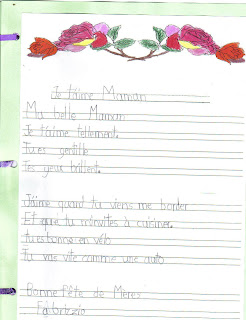 Je t'aime Maman
Ma belle Maman
Je t'aime tellement.
Tu es gentille
Tes yeux brillent.
J'aime quand tu viens me border
Et que tu m'invites à cuisiner.
tu es bonne en vélo
Tu vas vite comme une auto
Bonne Fête de Mères
Fabrizzio